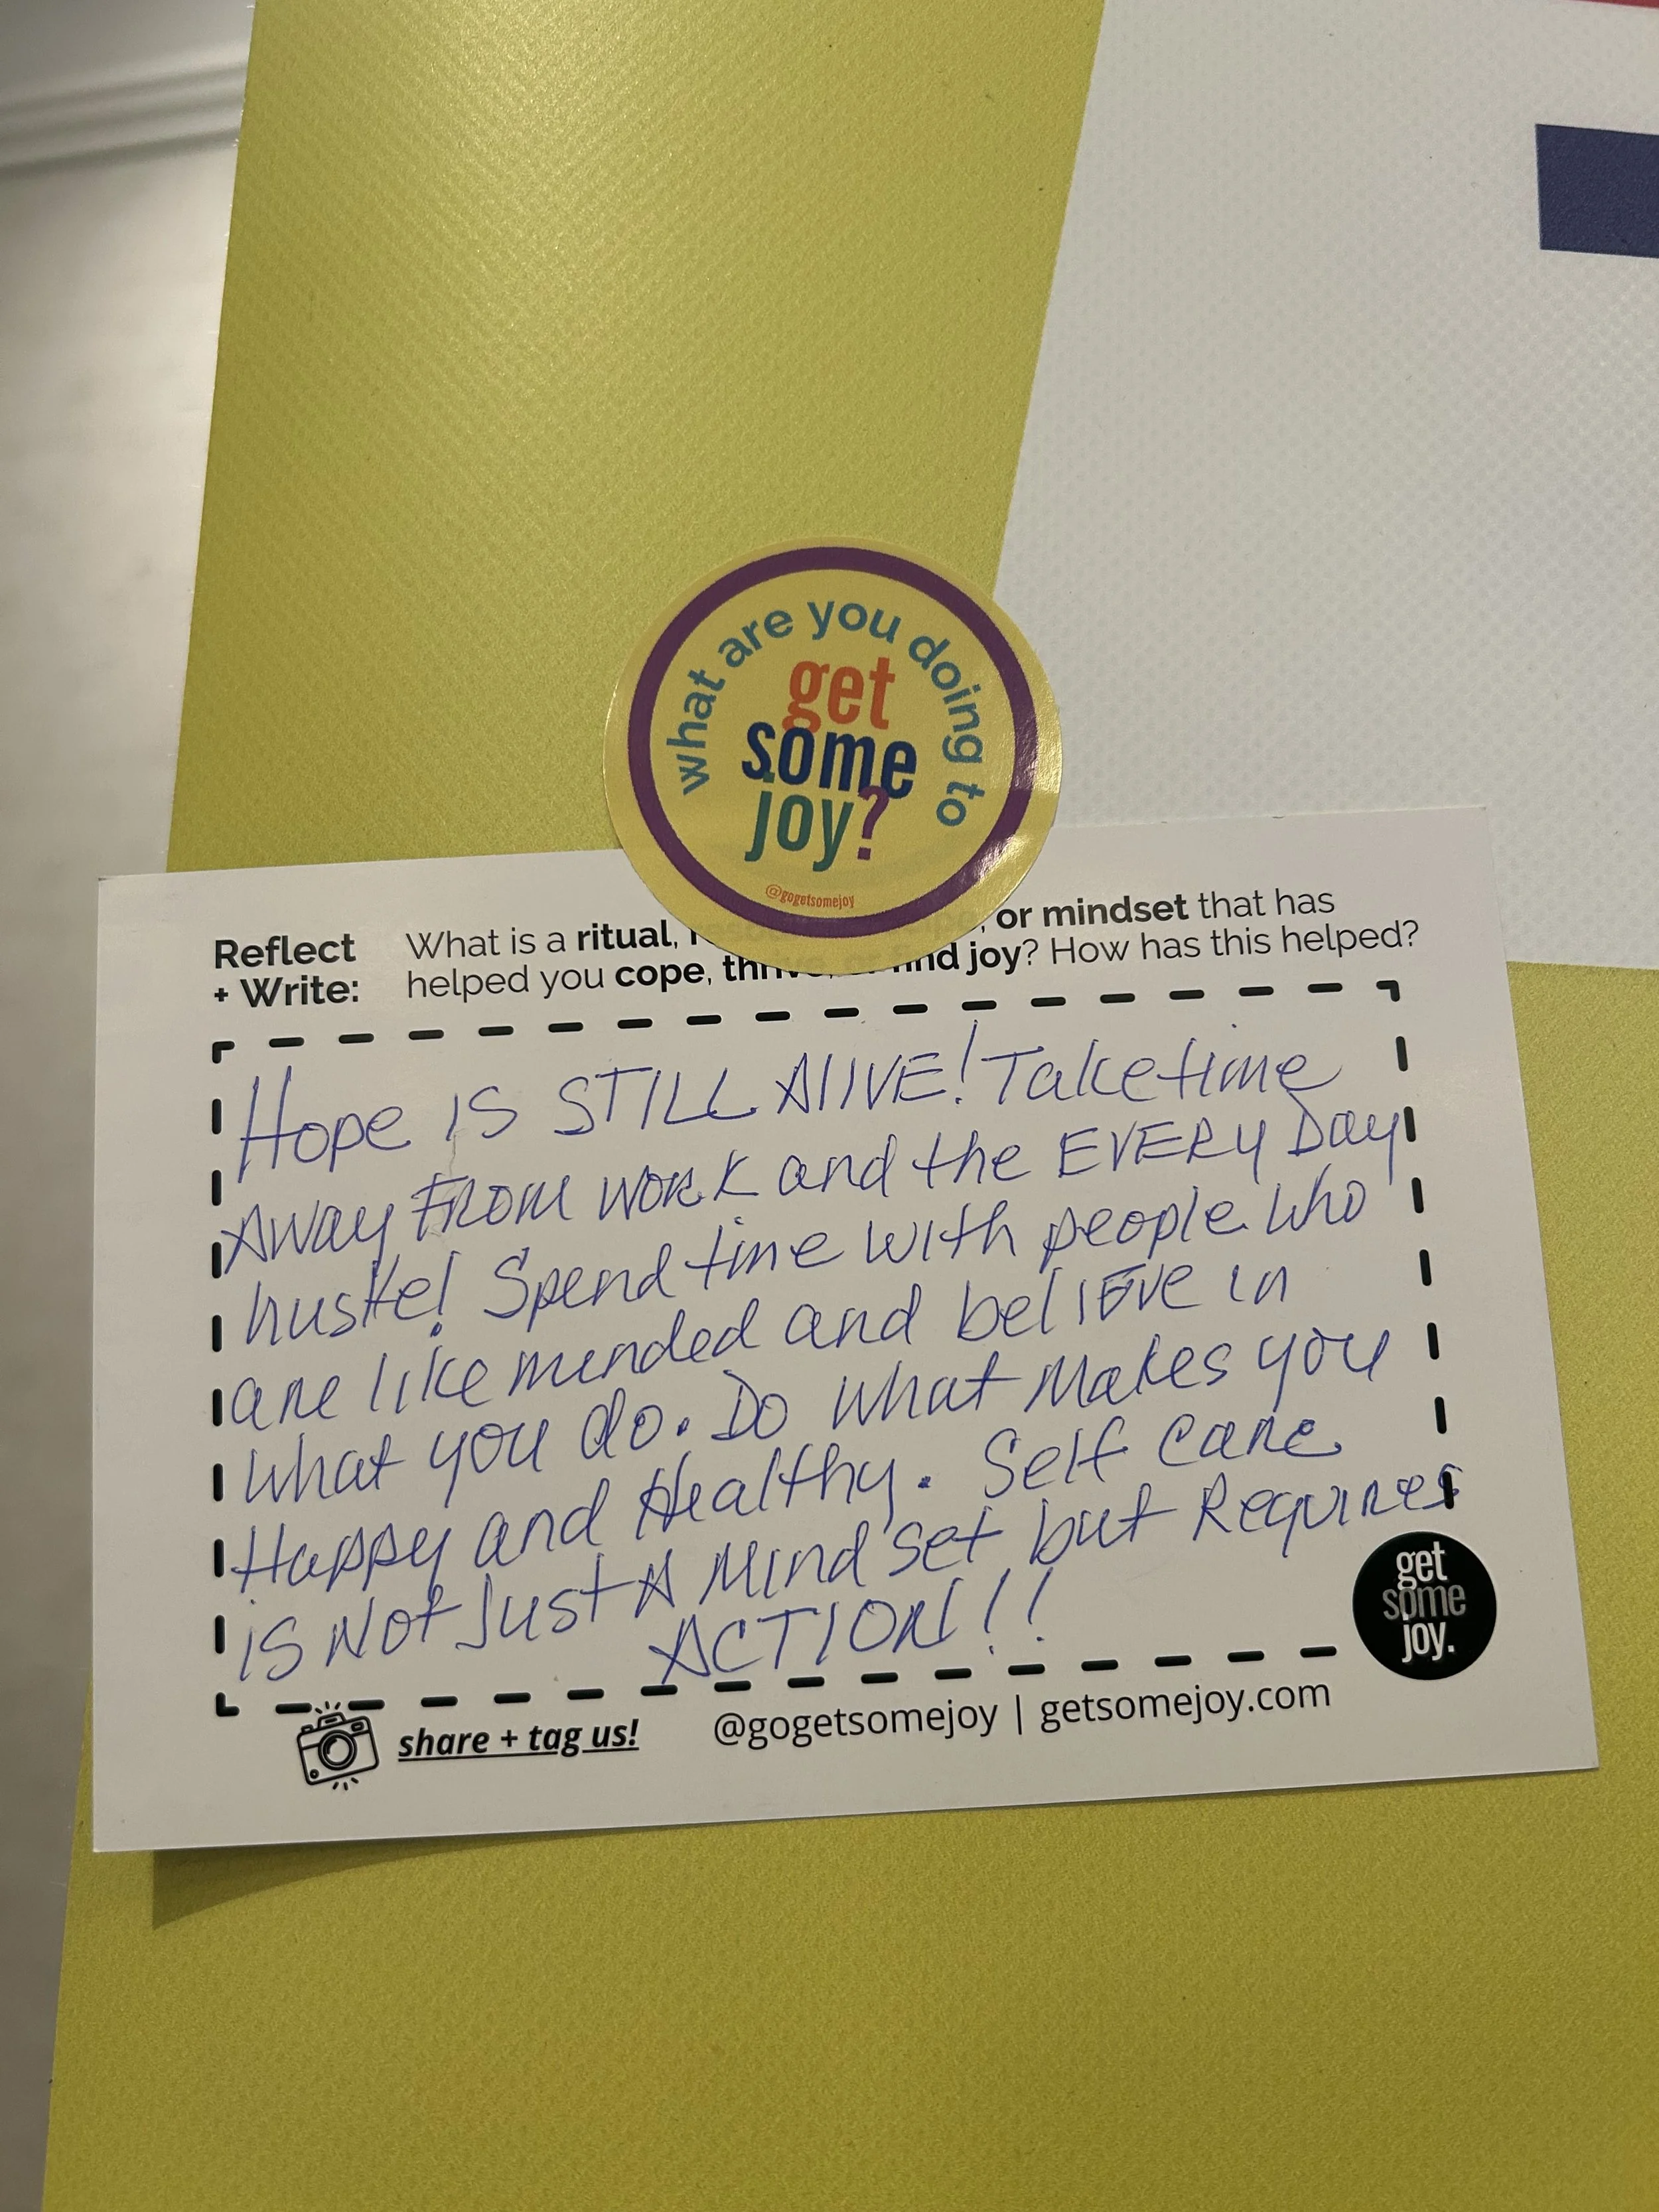 what are you doing to
get
some
joy?
@gogetsomejoy
Reflect
+ Write:
What is a ritual, or mindset that has
helped you cope, thrive, find joy? How has this helped?
Hope IS STILL AlIVE! Take time
AWay FROM WORK and the EVERY Day
hustle! Spend time with people who
are like minded and beliEve in
what you do. Do what Makes you
Happy and Healthy. Self care
is Not Just A Mindset but Requires
ACTION!!
get
some
joy.
share + tag us!
@gogetsomejoy | getsomejoy.com